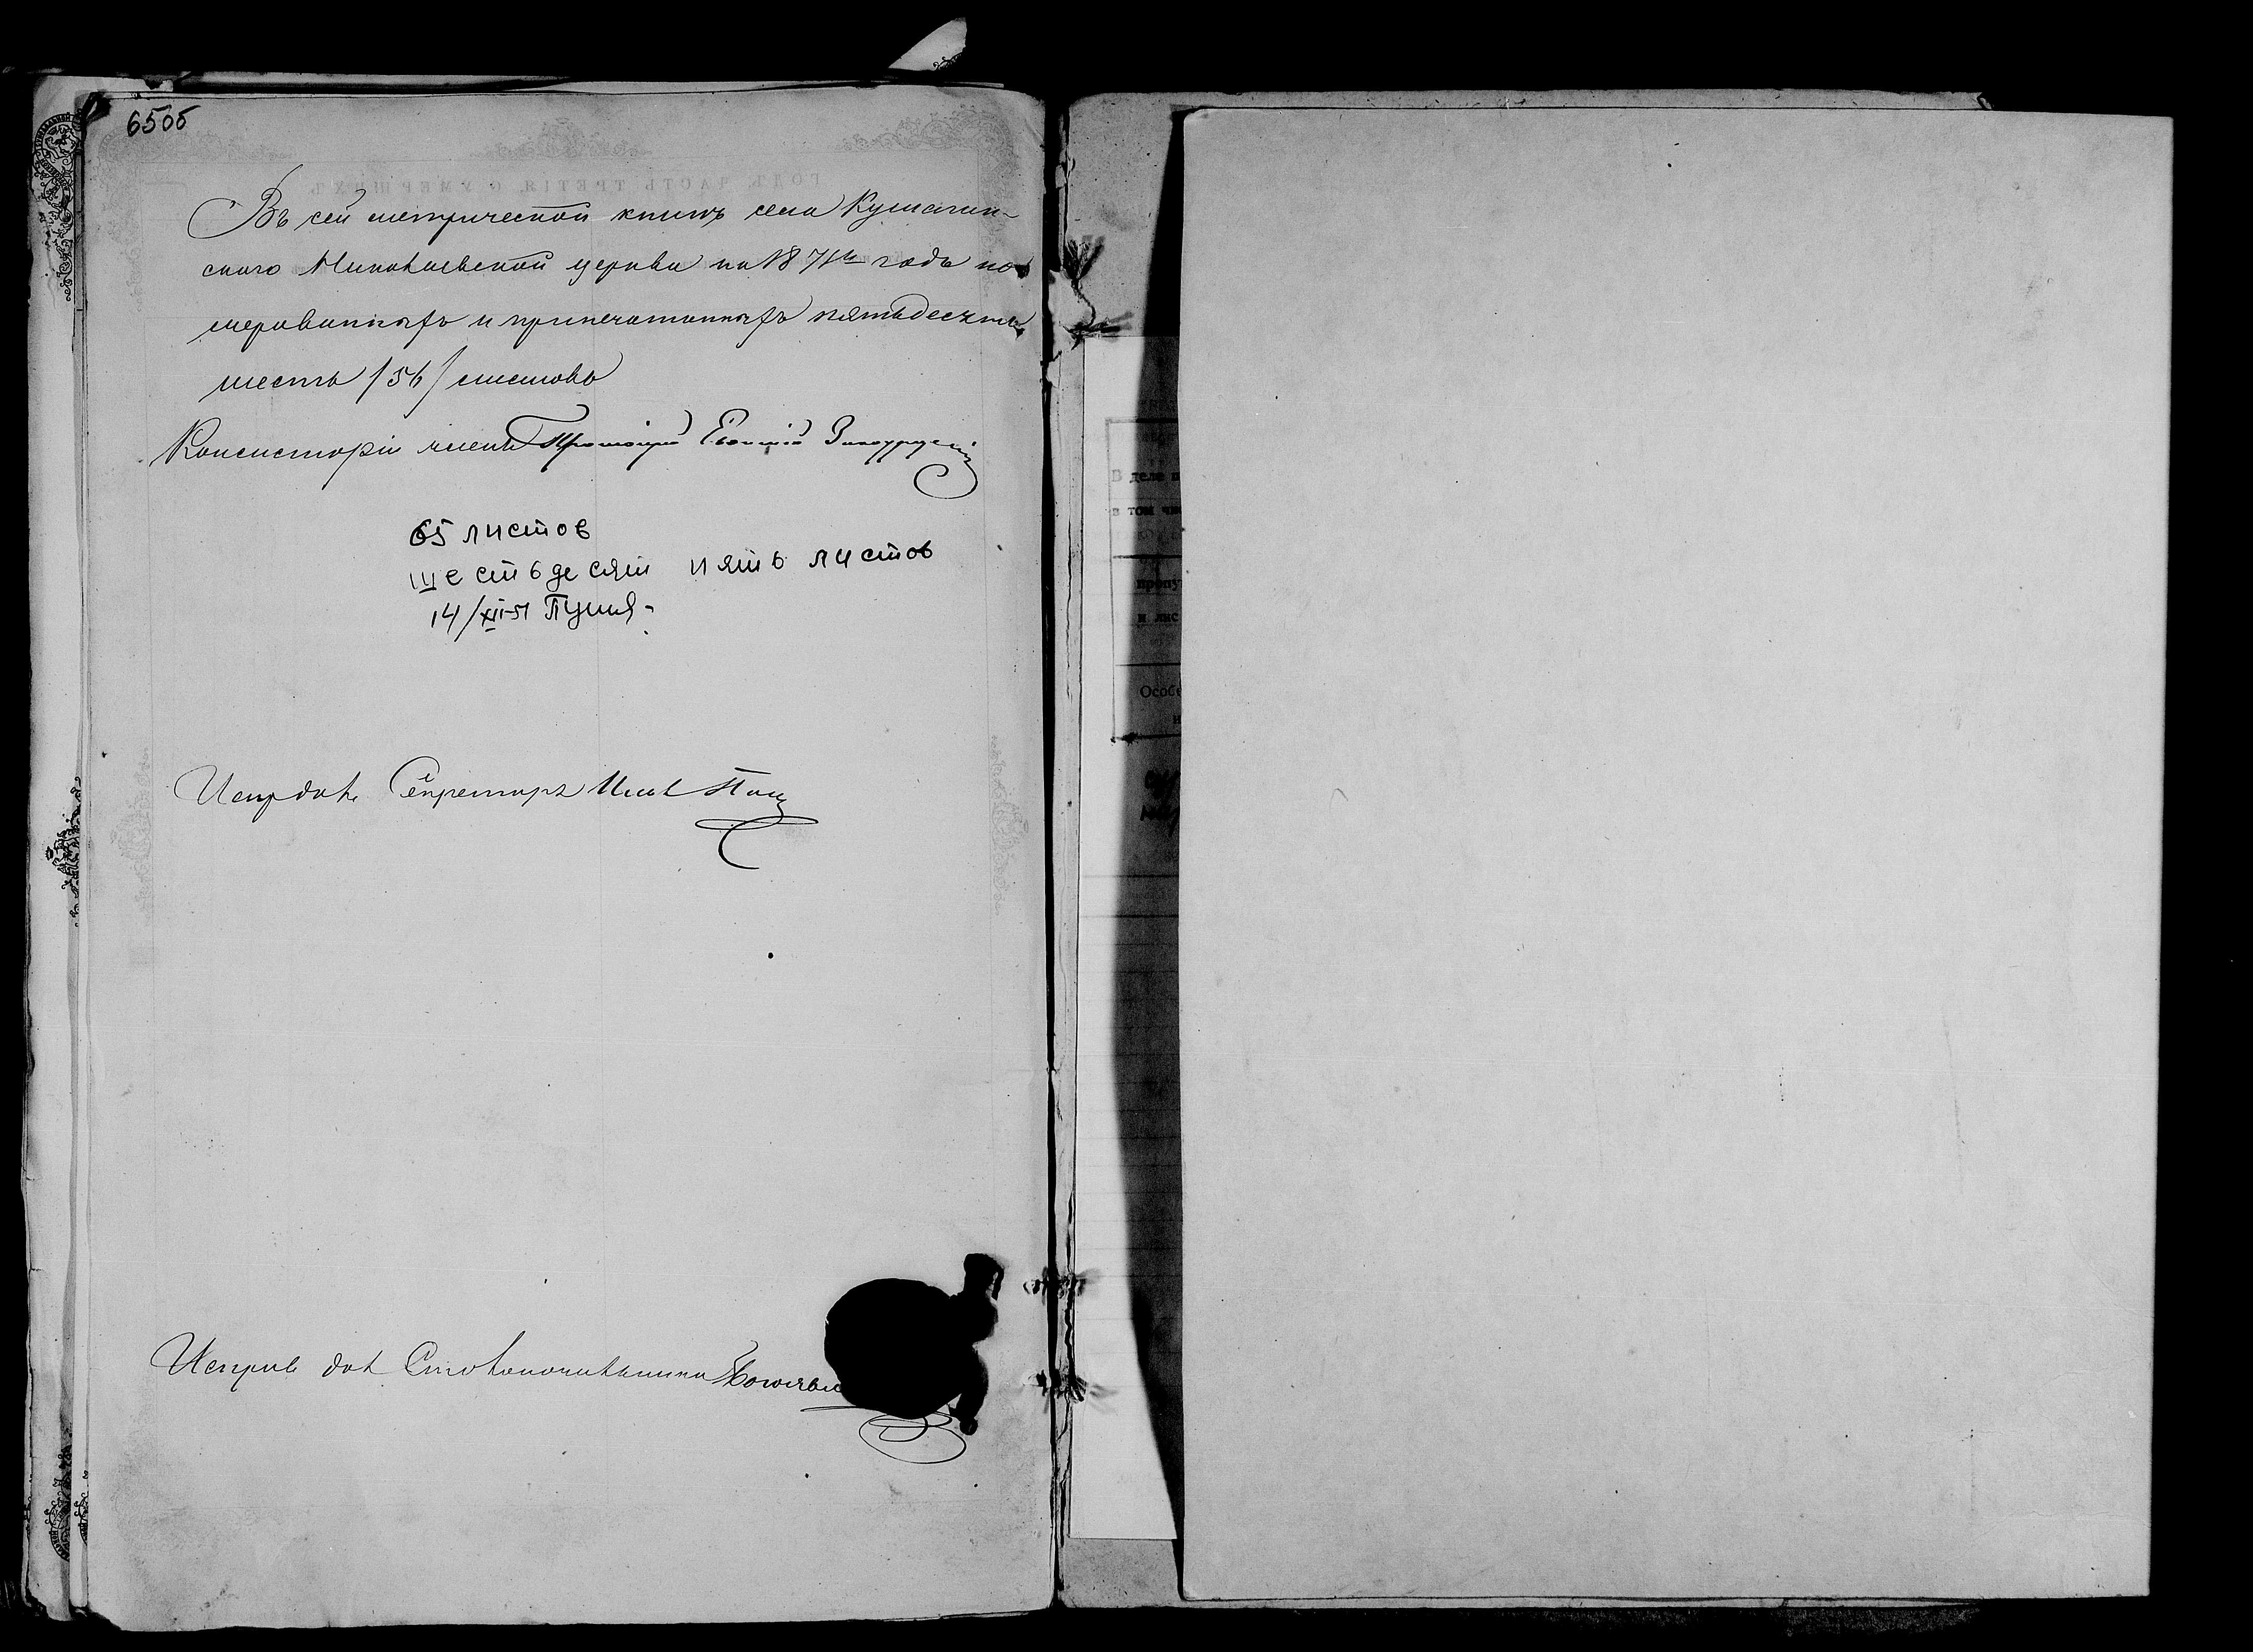 65об
Въ сей метрической книгѣ села Кумагин-
скаго Николаевской церкви на 1871й годъ но-
мерованныхъ и припечатанныхъ пятьдесятъ
шесть /56/ листовъ
Консисторіи членъ Протоіерей
65 листов
шестьдесят пять листов
14/XII-51
Испр. дол. Секретаря
Исправ. дол. Столоначальника
В деле
в том чис
пропу
и лис
Особе